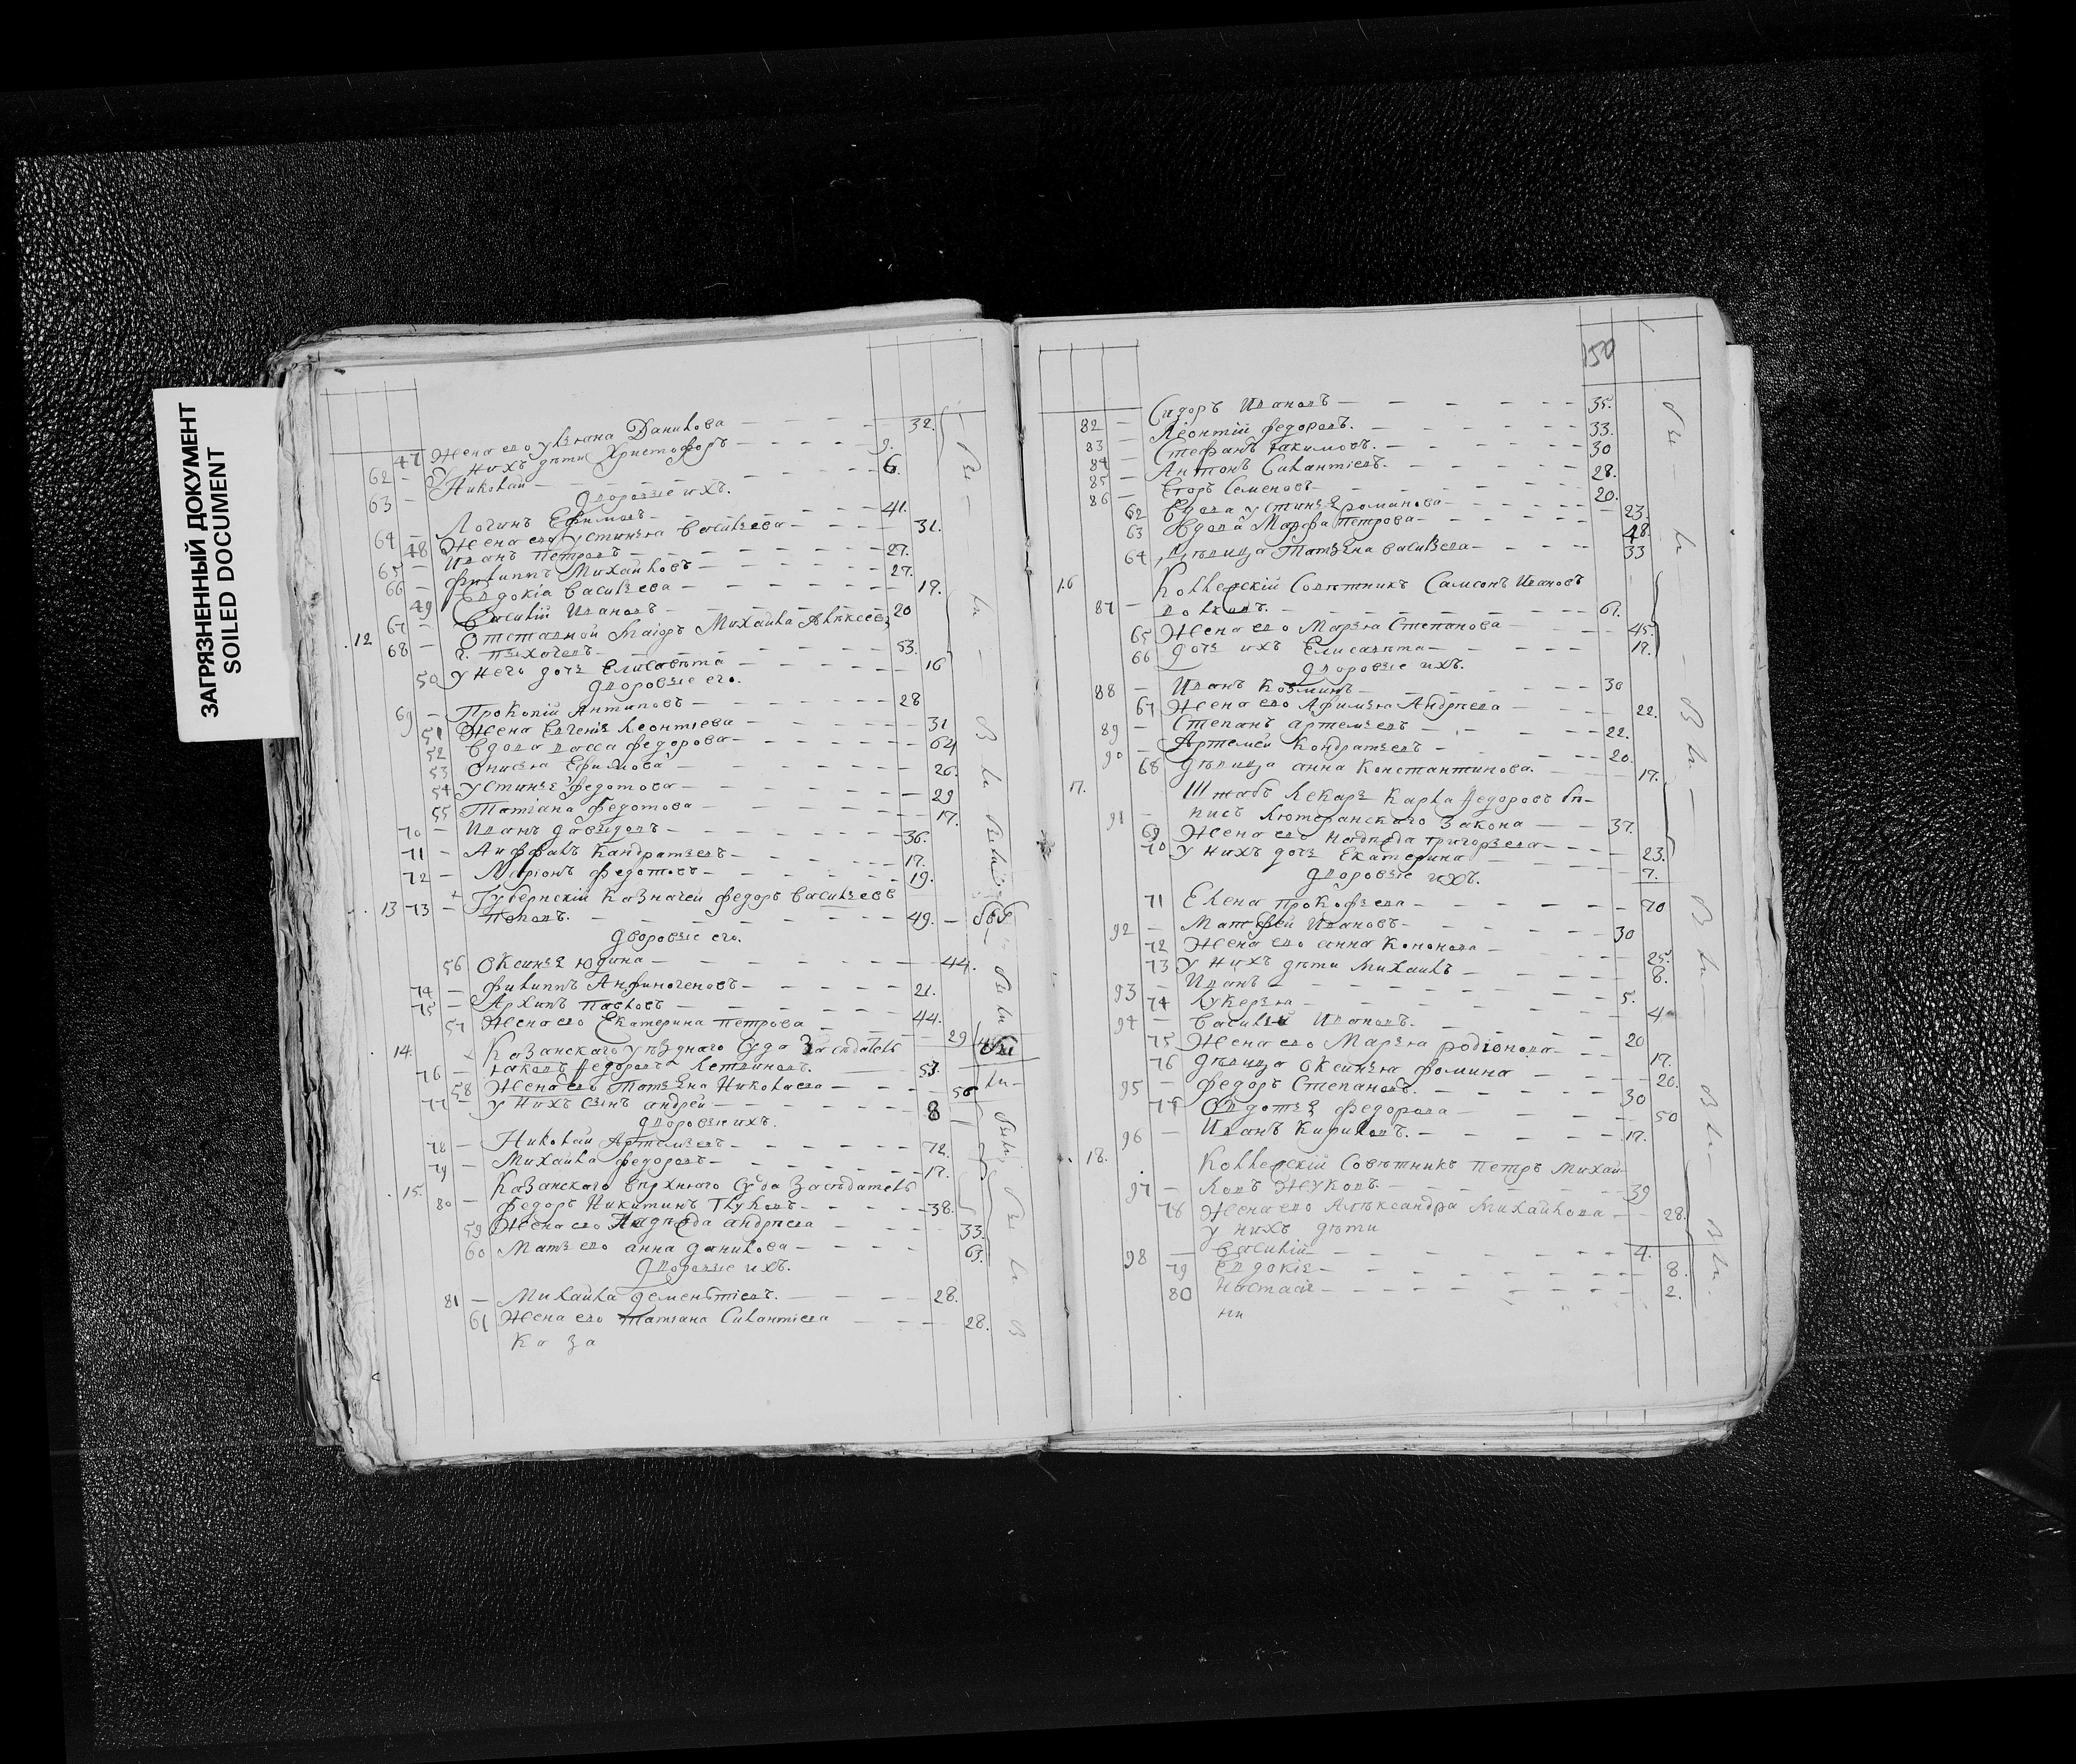 ЗАГРЯЗНЕННЫЙ ДОКУМЕНТ
SOILED DOCUMENT
47 Жена его Ульяна Данилова — 32.
62 — У нихъ дѣти Христофоръ — 9.
63 — Николай — 6.
Дворовые ихъ.
64 — Логинъ Ефимовъ — 41.
48 Жена его Устинья Васильева — 31.
65 — Иванъ Петровъ — 27.
66 — Филиппъ Михайловъ — 27.
49 Евдокіа Васильева — 19.
67 — Василій Ивановъ — 20
12 Отставной Маіоръ Михайла Алѣксеев
68 — 53.
50 У него дочь Елисавѣта — 16
Дворовые его.
69 — Прокопій Антиповъ — 28
51 Жена Евгенія Леонтіева — 31
52 Вдова Васса Федорова — 64
53 Ефимова — 26.
54 Устинья Федотова — 29
55 Татіана Федотова — 17.
70 — Иванъ Давыдовъ — 36.
71 — Кандратьевъ — 17.
72 — Ларіонъ Федотовъ — 19.
13 Губернскій Казначей Федоръ Васильевъ
73 — Поповъ. — 49.
Дворовые его.
56 Оксинья Юдина — 44.
74 — Филиппъ Анфиногеновъ — 21.
75 — Архипъ Павловъ — 44.
57 Жена его Екатерина Петрова — 29
14. Казанскаго уѣзднаго Суда Засѣдатель
76 — Яковъ Федоровъ — 53.
58 Жена его Татьяна Николаева — 50
77 — У нихъ сынъ Андрей — 8
Дворовые ихъ.
78 — Николай Артемьевъ — 72.
79 — Михайла Федоровъ — 17.
15. Казанскаго верхняго Суда Засѣдатель
80 — Федоръ Никитинъ — 38.
59 Жена его Надѣжда Андрѣева — 33.
60 Мать его Анна Данилова — 63.
Дворовые ихъ.
81 — Михайла Дементіевъ. — 28.
61 Жена его Татіана Силантіева — 28.
Каза
150
82 — Сидоръ Ивановъ — 35.
83 — Леонтій Федоровъ. — 33.
84 — Стефанъ Якимовъ. — 30
85 — Антонъ Силантіевъ. — 28.
86 — Егоръ Семеновъ — 20.
62 Вдова Устинья Романова — 23.
63 Вдова Марфа Петрова — 48.
64 Дѣвица Татьяна Васильева — 33
16 Коллерскій Совѣтникъ Самсонъ Ивановъ
87 — Волковъ. — 61.
65 Жена его Марья Степанова — 45.
66 Дочь ихъ Елисавѣта — 17.
Дворовые ихъ.
88 — Иванъ Козминъ — 30
67 Жена его Афимья Андрѣева — 22.
89 — Степанъ Артемьевъ — 22.
90 — Артемей Кондратьевъ — 20.
68 Дѣвица Анна Константинова. — 17.
17. Штабъ Лекарь Карла Федоровъ
91 — Лютеранскаго Закона — 37.
69 Жена его Надѣжда Григорьева — 23.
70 У нихъ дочь Екатерина — 7.
Дворовые ихъ.
71 Елена Прокофьева — 70
92 — Матфей Ивановъ — 30
72 Жена его Анна Кононова — 25.
73 У нихъ дѣти Михаилъ — 8.
93 — Иванъ — 5.
74 Лукерья — 4
94 — Василей Ивановъ. — 20
75 Жена его Марья Родіонова — 17.
76 Дѣвица Оксинья Фомина — 20.
95 — Федоръ Степановъ. — 30
77 Авдотья Федорова — 50
96 — Иванъ Кириловъ. — 17.
18. Коллерскій Совѣтникъ Петръ Михай
97 — ловъ Жуковъ. — 39
78 Жена его Алѣксандра Михайлова — 28.
У нихъ дѣти
98 — Василій — 4.
79 Евдокія — 8.
80 Настасія — 2.